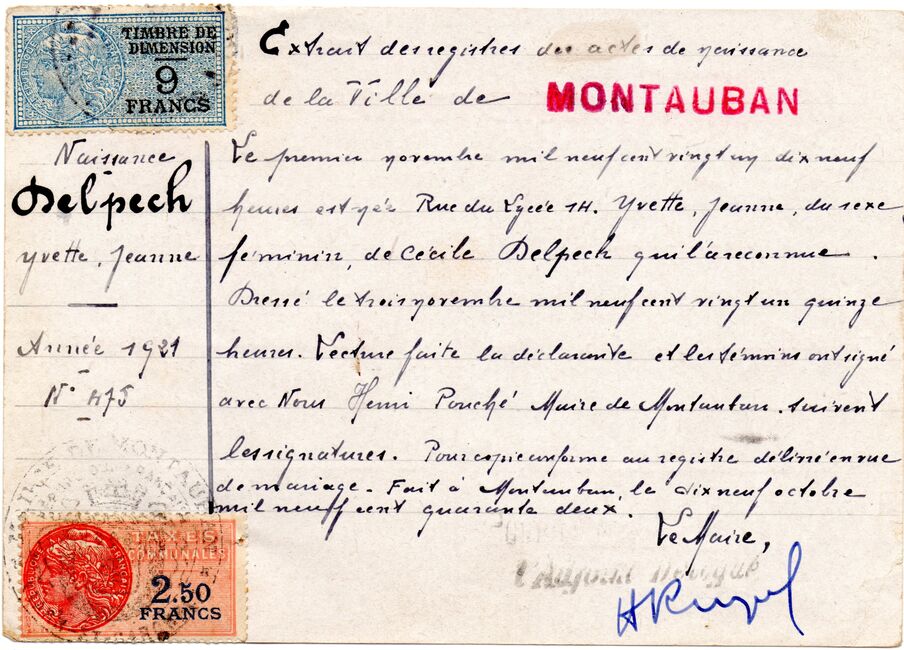 TIMBRE DE
DIMENSION
9
FRANCS
Extrait des registres des actes de naissance
de la Ville de MONTAUBAN
Naissance
Delpech
Yvette, Jeanne
Année 1921
N° 475
Le premier novembre mil neuf cent vingt un dix neuf
heures est née Rue du Lycée 14. Yvette, Jeanne, du sexe
féminin, de Cécile Delpech qui l'a reconnue.
Dressé le trois novembre mil neuf cent vingt un quinze
heures. Lecture faite la déclarante et les témoins ont signé
avec Nous Henri Pouché Maire de Montauban. suivent
les signatures. Pour copie conforme au registre délivrée en vue
de mariage. Fait à Montauban, le dix neuf octobre
mil neuf cent quarante deux.
Le Maire,
l'Adjoint Délégué
TAXES
COMMUNALES
2.50
FRANCS